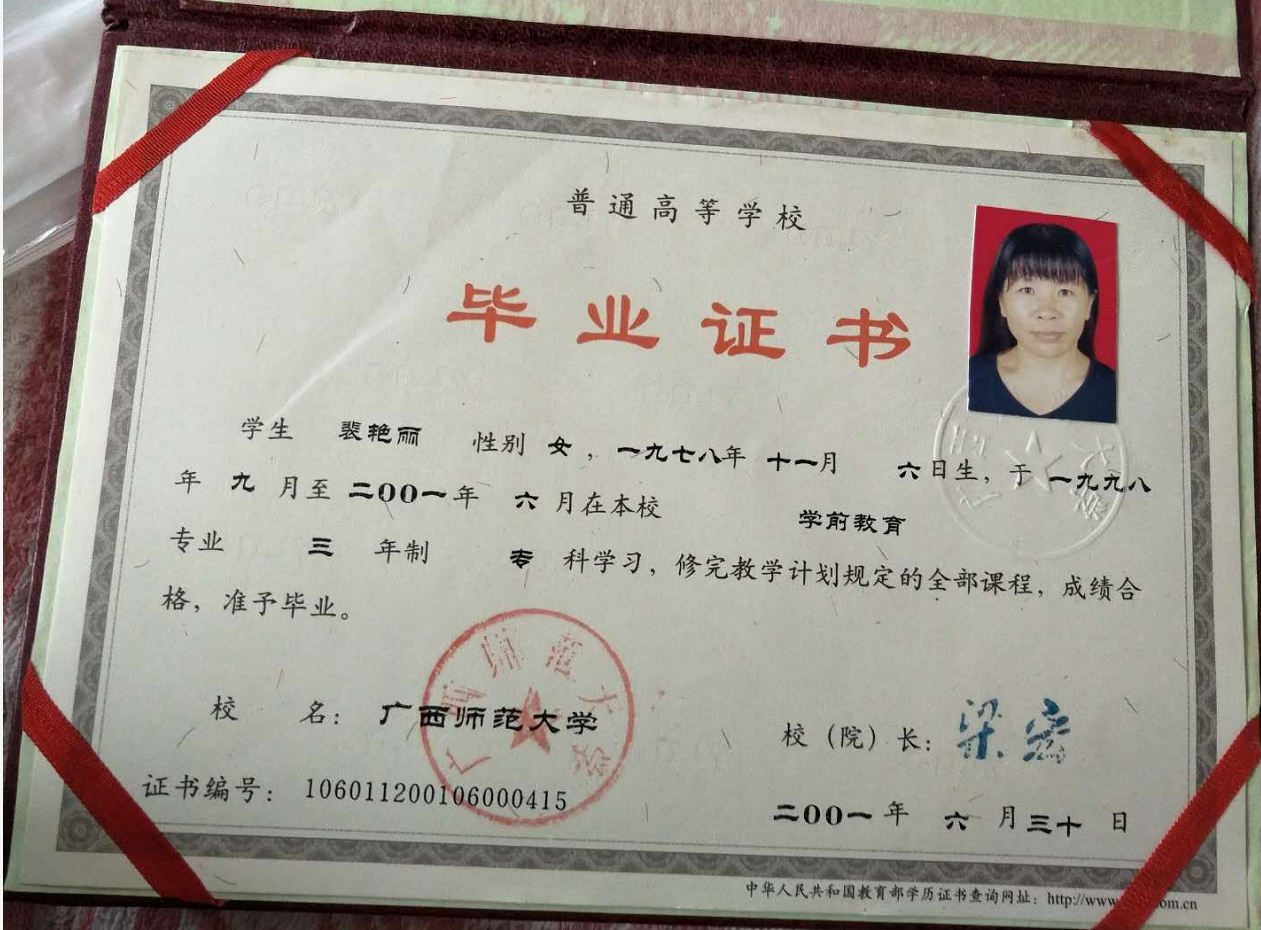 普通高等学校
毕业证书
学生 裴艳丽 性别 女，一九七八年 十一月 六日生，于一九九八
年 九 月至 二00一年 六 月在本校 学前教育
专业 三 年制 专 科学习，修完教学计划规定的全部课程，成绩合
格，准予毕业。
广西师范大学
校 名： 广西师范大学
校（院）长： 梁宏
证书编号： 106011200106000415
二00一年 六 月三十 日
中华人民共和国教育部学历证书查询网址：http://www. om.cn